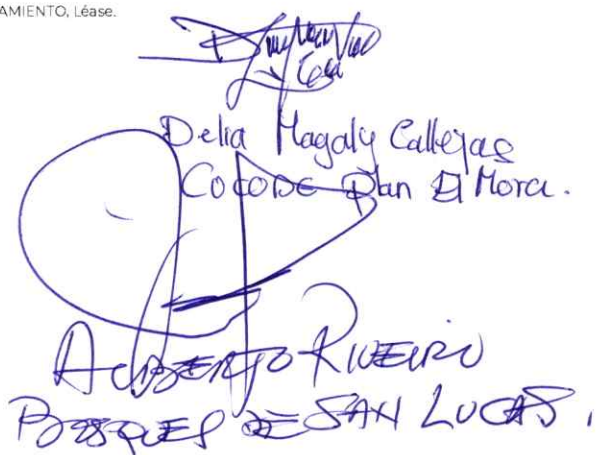 AMIENTO, Léase.
Delia Magaly Callejas
COCODE Plan El Mora.
ALBERTO RIVEIRO
BOSQUES DE SAN LUCAS.